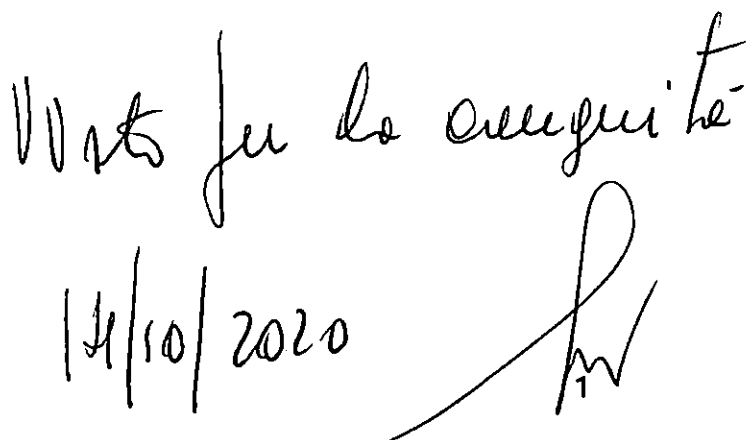 Visto per la congruità
14/10/2020
1